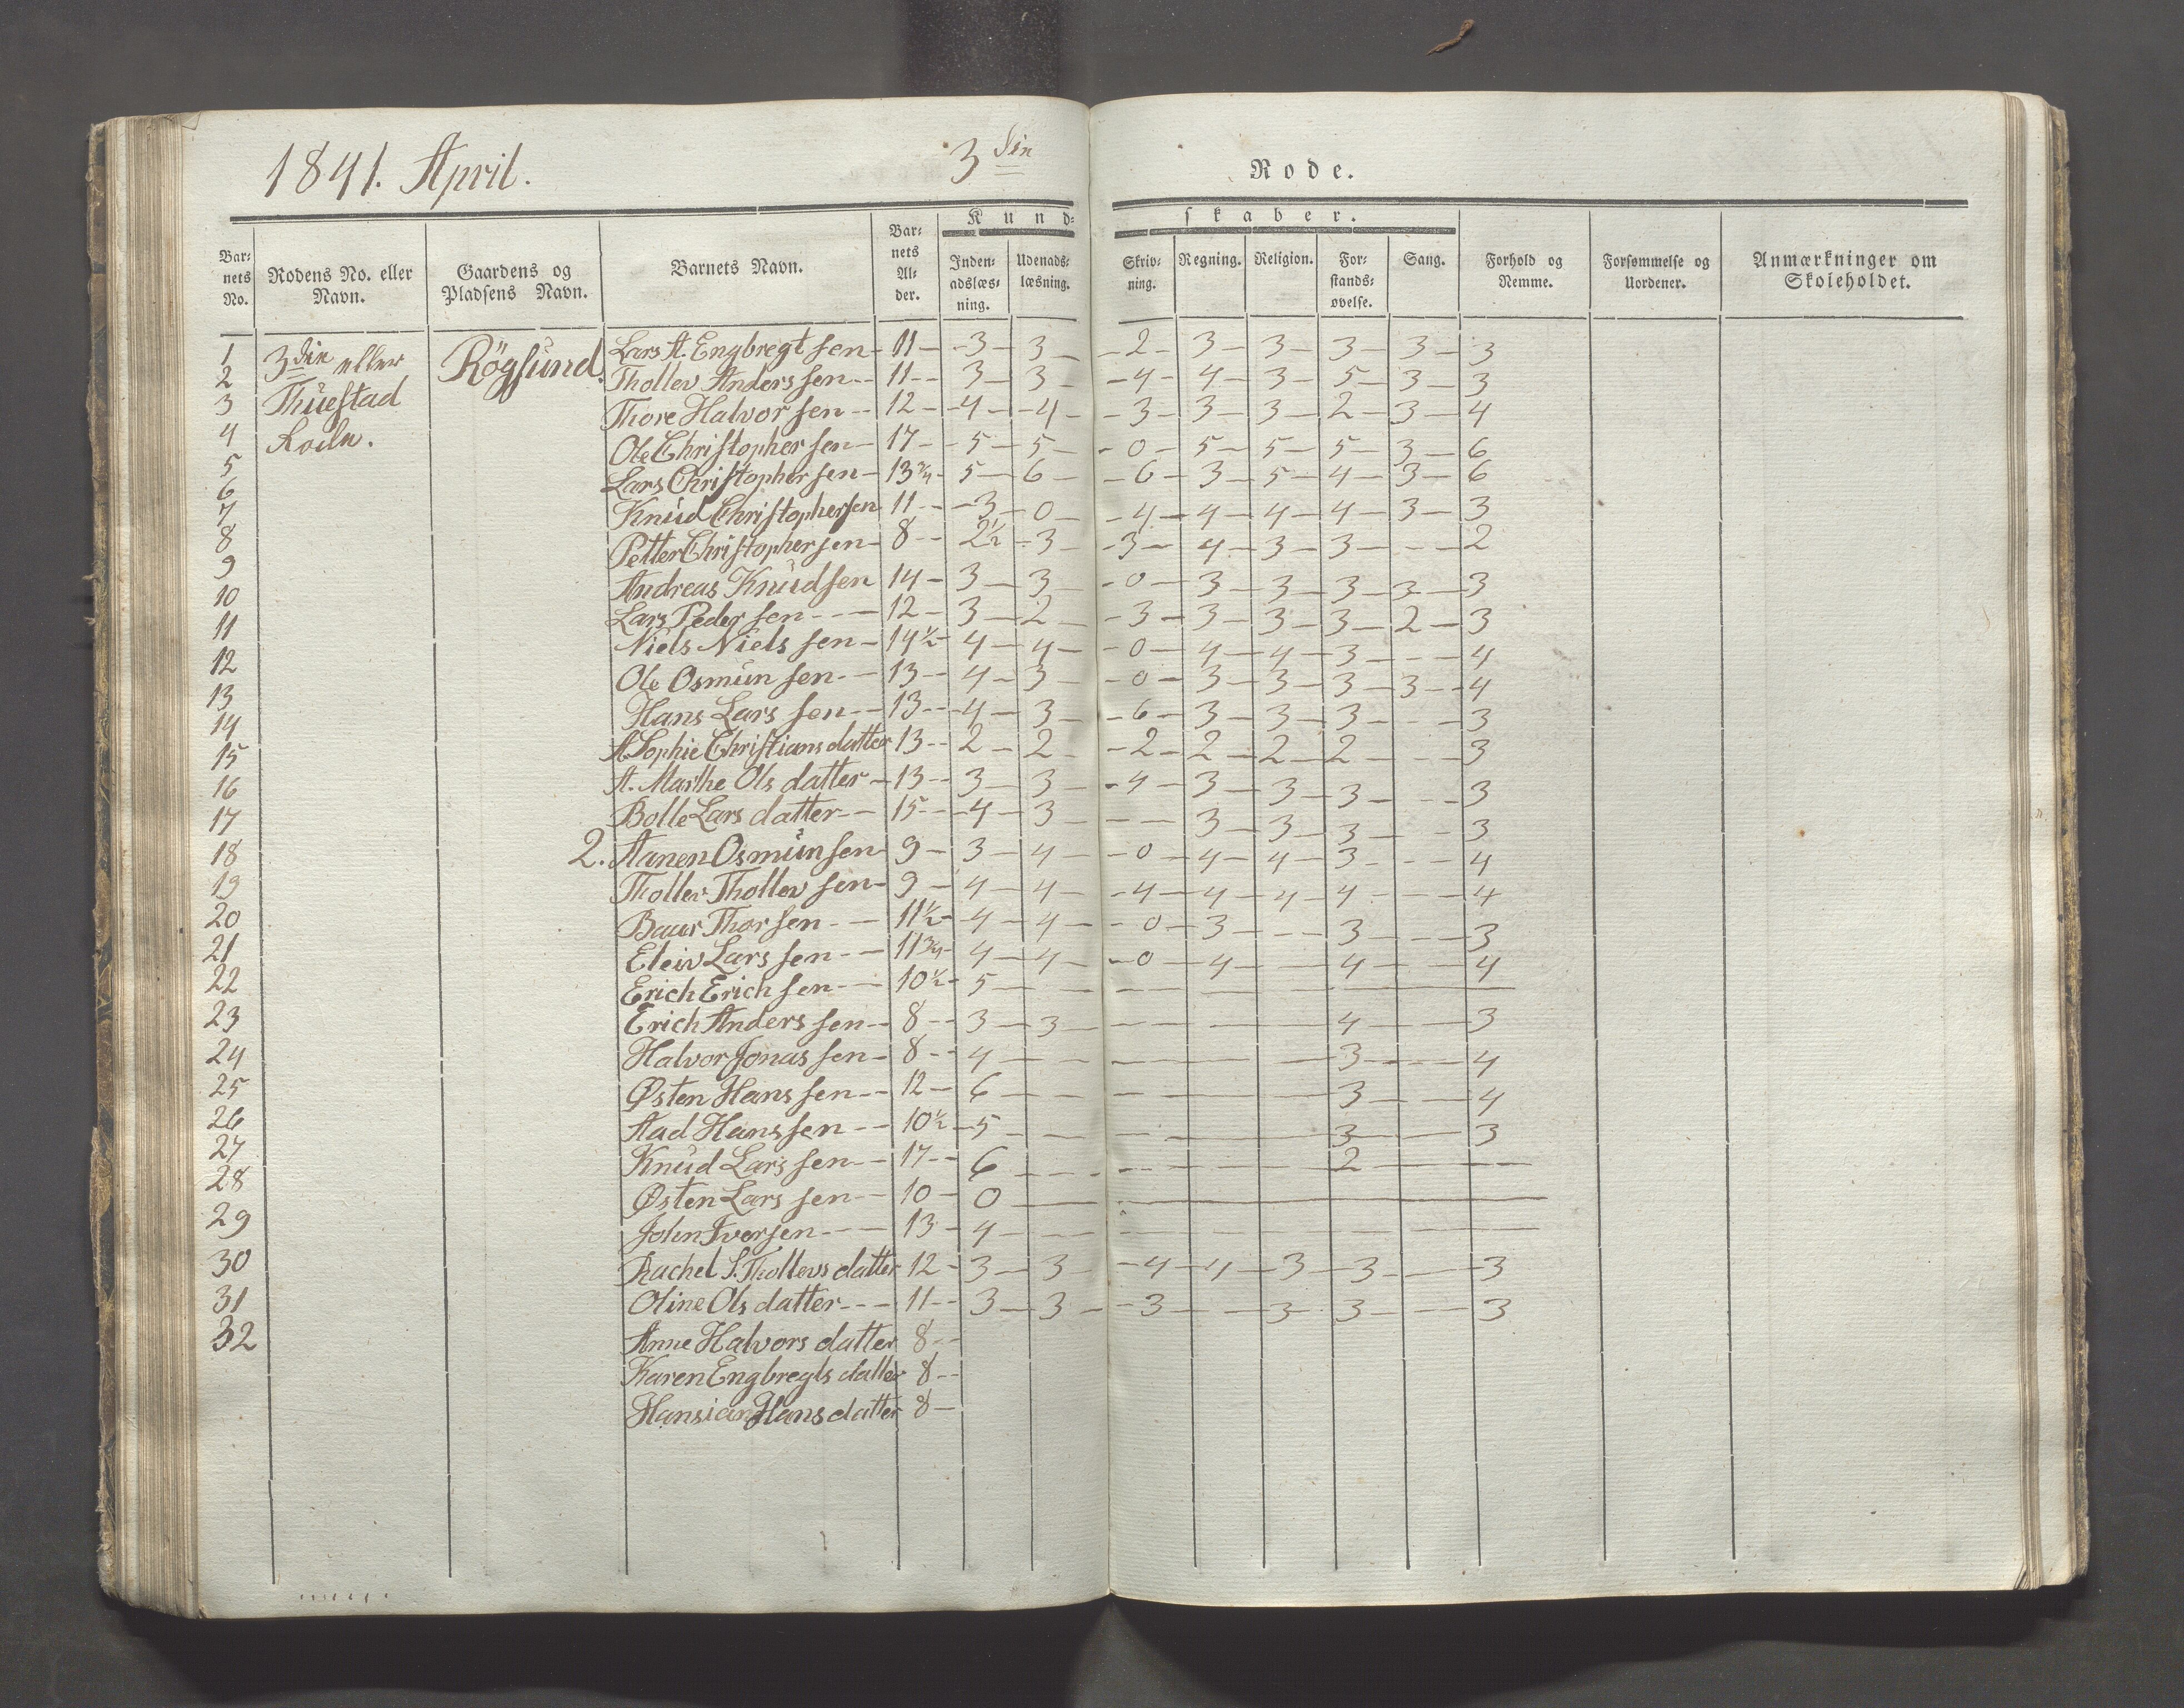 1841. April. 3die Rode.
Kund-skaber.
Barnets No. | Rodens No. eller Navn. | Gaardens og Pladsens Navn. | Barnets Navn. | Barnets Alder. | Indenadslæsning. | Udenadslæsning. | Skrivning. | Regning. | Religion. | Forstandsøvelse. | Sang. | Forhold og Nemme. | Forsømmelse og Uordener. | Anmærkninger om Skoleholdet.
1 3die eller Röĝsund. Lars A. Engbregtsen - 11 - 3 - 3 - 2 - 3 - 3 - 3 - 3 - 3
2 Thuestad Thollev Anderssen - 11 - 3 - 3 - 4 - 4 - 3 - 5 - 3 - 3
3 Rode. Thore Halvorsen - 12 - 4 - 4 - 3 - 3 - 3 - 2 - 3 - 4
4 Ole Christophersen - 17 - 5 - 5 - 0 - 5 - 5 - 5 - 3 - 6
5 Lars Christophersen - 13 3/4 - 5 - 6 - 6 - 3 - 5 - 4 - 3 - 6
6 Knud Christophersen 11 - 3 - 0 - 4 - 4 - 4 - 4 - 3 - 3
7 Petter Christophersen - 8 - 2 1/2 - 3 - 3 - 4 - 3 - 3 - - 2
8 Andreas Knudsen 14 - 3 - 3 - 0 - 3 - 3 - 3 - 3 - 3
9 Lars Pedersen - 12 - 3 - 2 - 3 - 3 - 3 - 3 - 2 - 3
10 Niels Nielssen - 14 1/2 - 4 - 4 - 0 - 4 - 4 - 3 - - 4
11 Ole Osmunsen - 13 - 4 - 3 - 0 - 3 - 3 - 3 - 3 - 4
12 Hans Larssen - 13 - 4 - 3 - 6 - 3 - 3 - 3 - - 3
13 A. Sophie Christiansdatter 13 - 2 - 2 - 2 - 2 - 2 - 2 - - 3
14 A. Marthe Olsdatter - 13 - 3 - 3 - 4 - 3 - 3 - 3 - - 3
15 Bolle Larsdatter - 15 - 4 - 3 - - 3 - 3 - 3 - - 3
16 2. Aanen Osmunsen 9 - 3 - 4 - 0 - 4 - 4 - 3 - - 4
17 Thollev Thollevsen - 9 - 4 - 4 - 4 - 4 - 4 - 4 - - 4
18 Baur Thorsen - 11 1/2 - 4 - 4 - 0 - 3 - - 3 - - 3
19 Eleiv Larssen - 11 3/4 - 4 - 4 - 0 - 4 - - 4 - - 4
20 Erich Erichsen - 10 1/2 - 5 -
21 Erich Anderssen - 8 - 3 - 3 - - - - 4 - - 3
22 Halvor Jonassen - 8 - 4 - - - - - 3 - - 4
23 Østen Hanssen - 12 - 6 - - - - - 3 - - 4
24 Aad Hanssen - 10 1/2 - 5 - - - - - 3 - - 3
25 Knud Larssen - 17 - 6 - - - - - 2 - -
26 Østen Larssen - 10 - 0 -
27 John Iversen - 13 - 4 -
28 Rachel S. Thollevsdatter 12 - 3 - 3 - 4 - 4 - 3 - 3 - - 3
29 Oline Olsdatter - 11 - 3 - 3 - 3 - - 3 - 3 - - 3
30 Anne Halvorsdatter 8 -
31 Karen Engbregtsdatter 8 -
32 Hansian Hansdatter 8 -